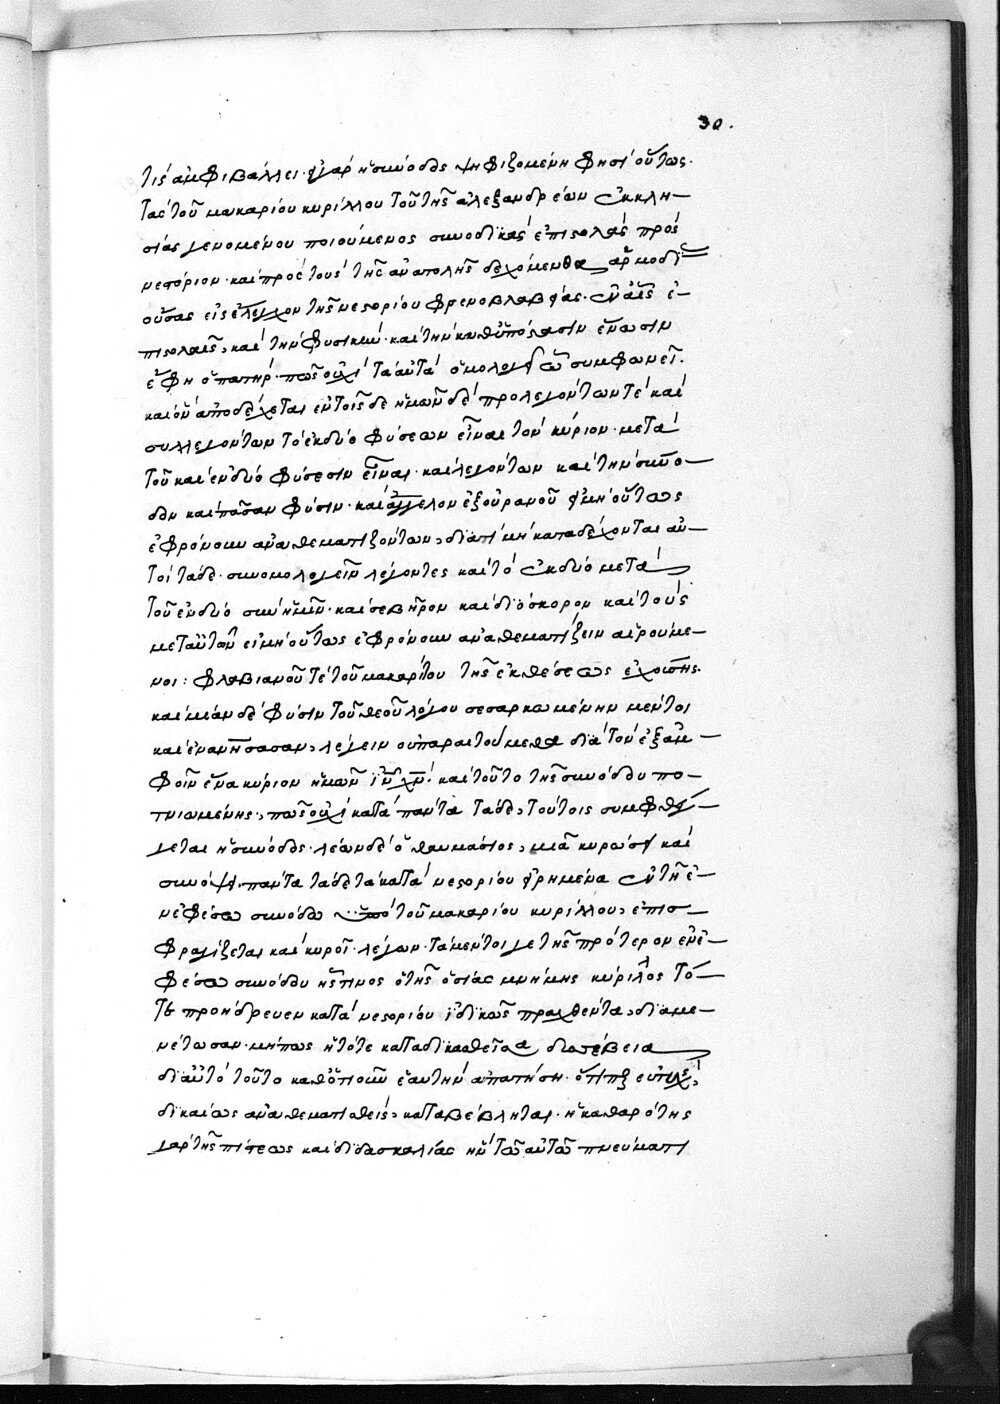 30.
τίς ἀμφιβάλλει· εἰ γὰρ ἡ σύνοδος ψηφιζομένη φησὶ οὕτως·
τὰς τοῦ μακαρίου κυρίλλου τοῦ τῆς ἀλεξανδρέων ἐκκλη-
σίας γενομένου ποιούμενος συνοδικὰς ἐπιστολὰς πρὸς
νεστόριον· καὶ πρὸς τοὺς τῆς ἀνατολῆς δεχόμεθα ἁρμοδί-
ούσας εἰς ἔλεγχον τῆς νεστορίου φρενοβλαβείας· ἐν αἷς ἐ-
πιστολαῖς, καὶ τὴν φυσικὴν· καὶ τὴν καθ᾽ ὑπόστασιν ἕνωσιν
ἔφη ὁ πατήρ· πῶς οὐχὶ τὰ αὐτὰ ὁμολογεῖ συμφωνεῖ·
καὶ οὐ ἀποδέχεται ἐν τοῖσδε ἡμῶν δὲ προλεγόντων τὲ καὶ
συλλεγόντων τὸ ἐκ δύο φύσεων εἶναι τὸν κύριον· μετὰ
τοῦ καὶ ἐν δύο φύσεσιν εἶναι· καὶ λεγόντων καὶ τὴν σύνο-
δον καὶ πᾶσαν φύσιν· καὶ ἄγγελον ἐξ οὐρανοῦ εἰ μὴ οὕτως
ἐφρόνουν ἀναθεματιζόντων, διατί μὴ καταδέχονται αὐ-
τοὶ τάδε· συνομολογεῖν λέγοντες καὶ τὸ ἐκ δύο μετὰ
τοῦ ἐν δύο σὺν ἡμῖν· καὶ σεβῆρον καὶ διόσκορον καὶ τοὺς
μετ᾽ αὐτῶν εἰ μὴ οὕτως ἐφρόνουν ἀναθεματίζειν αἱρούμε-
νοι: φλαβιανοῦ τὲ τοῦ μακαρίου τῆς ἐκθέσεως ἐχούσης·
καὶ μίαν δὲ φύσιν τοῦ θεοῦ λόγου σεσαρκωμένην μέντοι
καὶ ἐνανθρωπήσασαν, λέγειν οὐ παραιτούμεθα διὰ τὸν ἐξ ἀμ-
φοῖν ἕνα κύριον ἡμῶν ἰν χν· καὶ τοῦτο τῆς συνόδου πο-
τνιωμένης, πῶς οὐχὶ κατὰ πάντα τάδε, τούτοις συμφθέγ-
γεται ἡ σύνοδος· λέων δὲ ὁ θαυμάσιος, μιᾷ κυρώσει καὶ
συνόψει πάντα τάδε τὰ κατὰ νεστορίου εἰρημένα ἐν τῇ ἐ-
ν ἐφέσῳ συνόδῳ ὑπὸ τοῦ μακαρίου κυρίλλου, ἐπισ-
φραγίζεται καὶ κυροῖ· λέγων· τὰ μέντοι γε τῆς πρότερον ἐν ἐ-
φέσῳ συνόδου ἧς τινος ὁ τῆς ὁσίας μνήμης κύριλλος τό-
τε προήδρευεν κατὰ νεστορίου ἰδικῶς πραχθέντα, διαμε-
νέτωσαν· μήπως ἡ τότε καταδικασθεῖσα δυσσέβεια
δι᾽ αὐτὸ τοῦτο καθ᾽ ὁτιοῦν ἑαυτὴν ἀπατήσῃ·
δικαίως ἀναθεματισθεὶς, καταβέβληται· ἡ καθαρότης
γὰρ τῆς πίστεως καὶ διδασκαλίας ἣν τῷ αὐτῷ πνεύματι